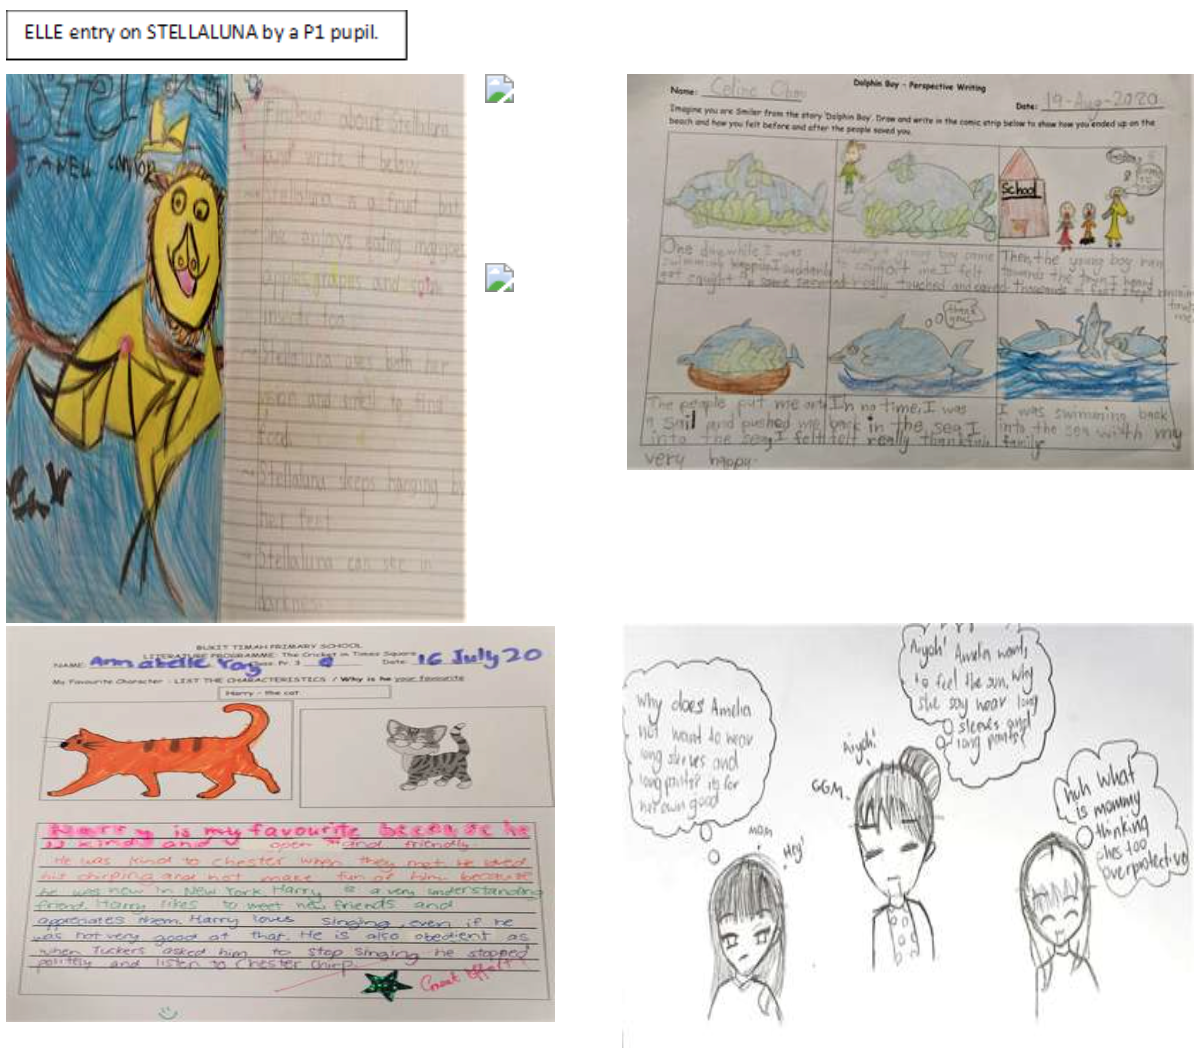 ELLE entry on STELLALUNA by a P1 pupil.
Stellaluna
JANELL
Find out about Stellaluna
and write it below
Stellaluna is a fruit bat
She enjoys eating
apples grapes and
Stellaluna uses both her
vision and smell to find
food.
Stellaluna sleeps hanging by
her feet
Stellaluna can see in
darkness
Dolphin Boy - Perspective Writing
Name: Celine
Date: 19-Aug-2020
Imagine you are Smiler from the story 'Dolphin Boy'. Draw and write in the comic strip below to show how you ended up on the
beach and how you felt before and after the people saved you.
School
One day while I was
swimming happily, I suddenly
got caught in some seaweed
young boy came
to comfort me. I felt
really touched and
Then, the young boy ran
towards the town. I heard
thousands of
thank
you!
The people put me onto
a sail and pushed me
into the sea. I felt
very happy.
In no time, I was
back in the sea. I
felt really thankful
I was swimming back
into the sea with my
family
BUKIT TIMAH PRIMARY SCHOOL
LITERATURE PROGRAMME: The Cricket in Times Square
NAME: Annabelle Class: Pr. 3 Date: 16 July 20
My Favourite Character - LIST THE CHARACTERISTICS / Why is he your favourite
Harry - the cat
Harry is my favourite because he
is kind and open and friendly.
He was kind to Chester when they met. He loved
his chirping and not make fun of him because
he was new in New York. Harry is a very understanding
friend. Harry likes to meet new friends and
appreciates them. Harry loves singing even if he
was not very good at that. He is also obedient as
when Tuckers asked him to stop singing he stopped
politely and listen to Chester chirp.
Great effort!
Why does Amelia
not want to wear
long sleeves and
long pants? its for
her own good
MOM
Hey!
Aiyoh! Amelia want
to feel the sun, why
she say wear long
sleeves and
long pants?
Aiyoh!
GGM
huh what
is mommy
thinking
shes too
overprotective